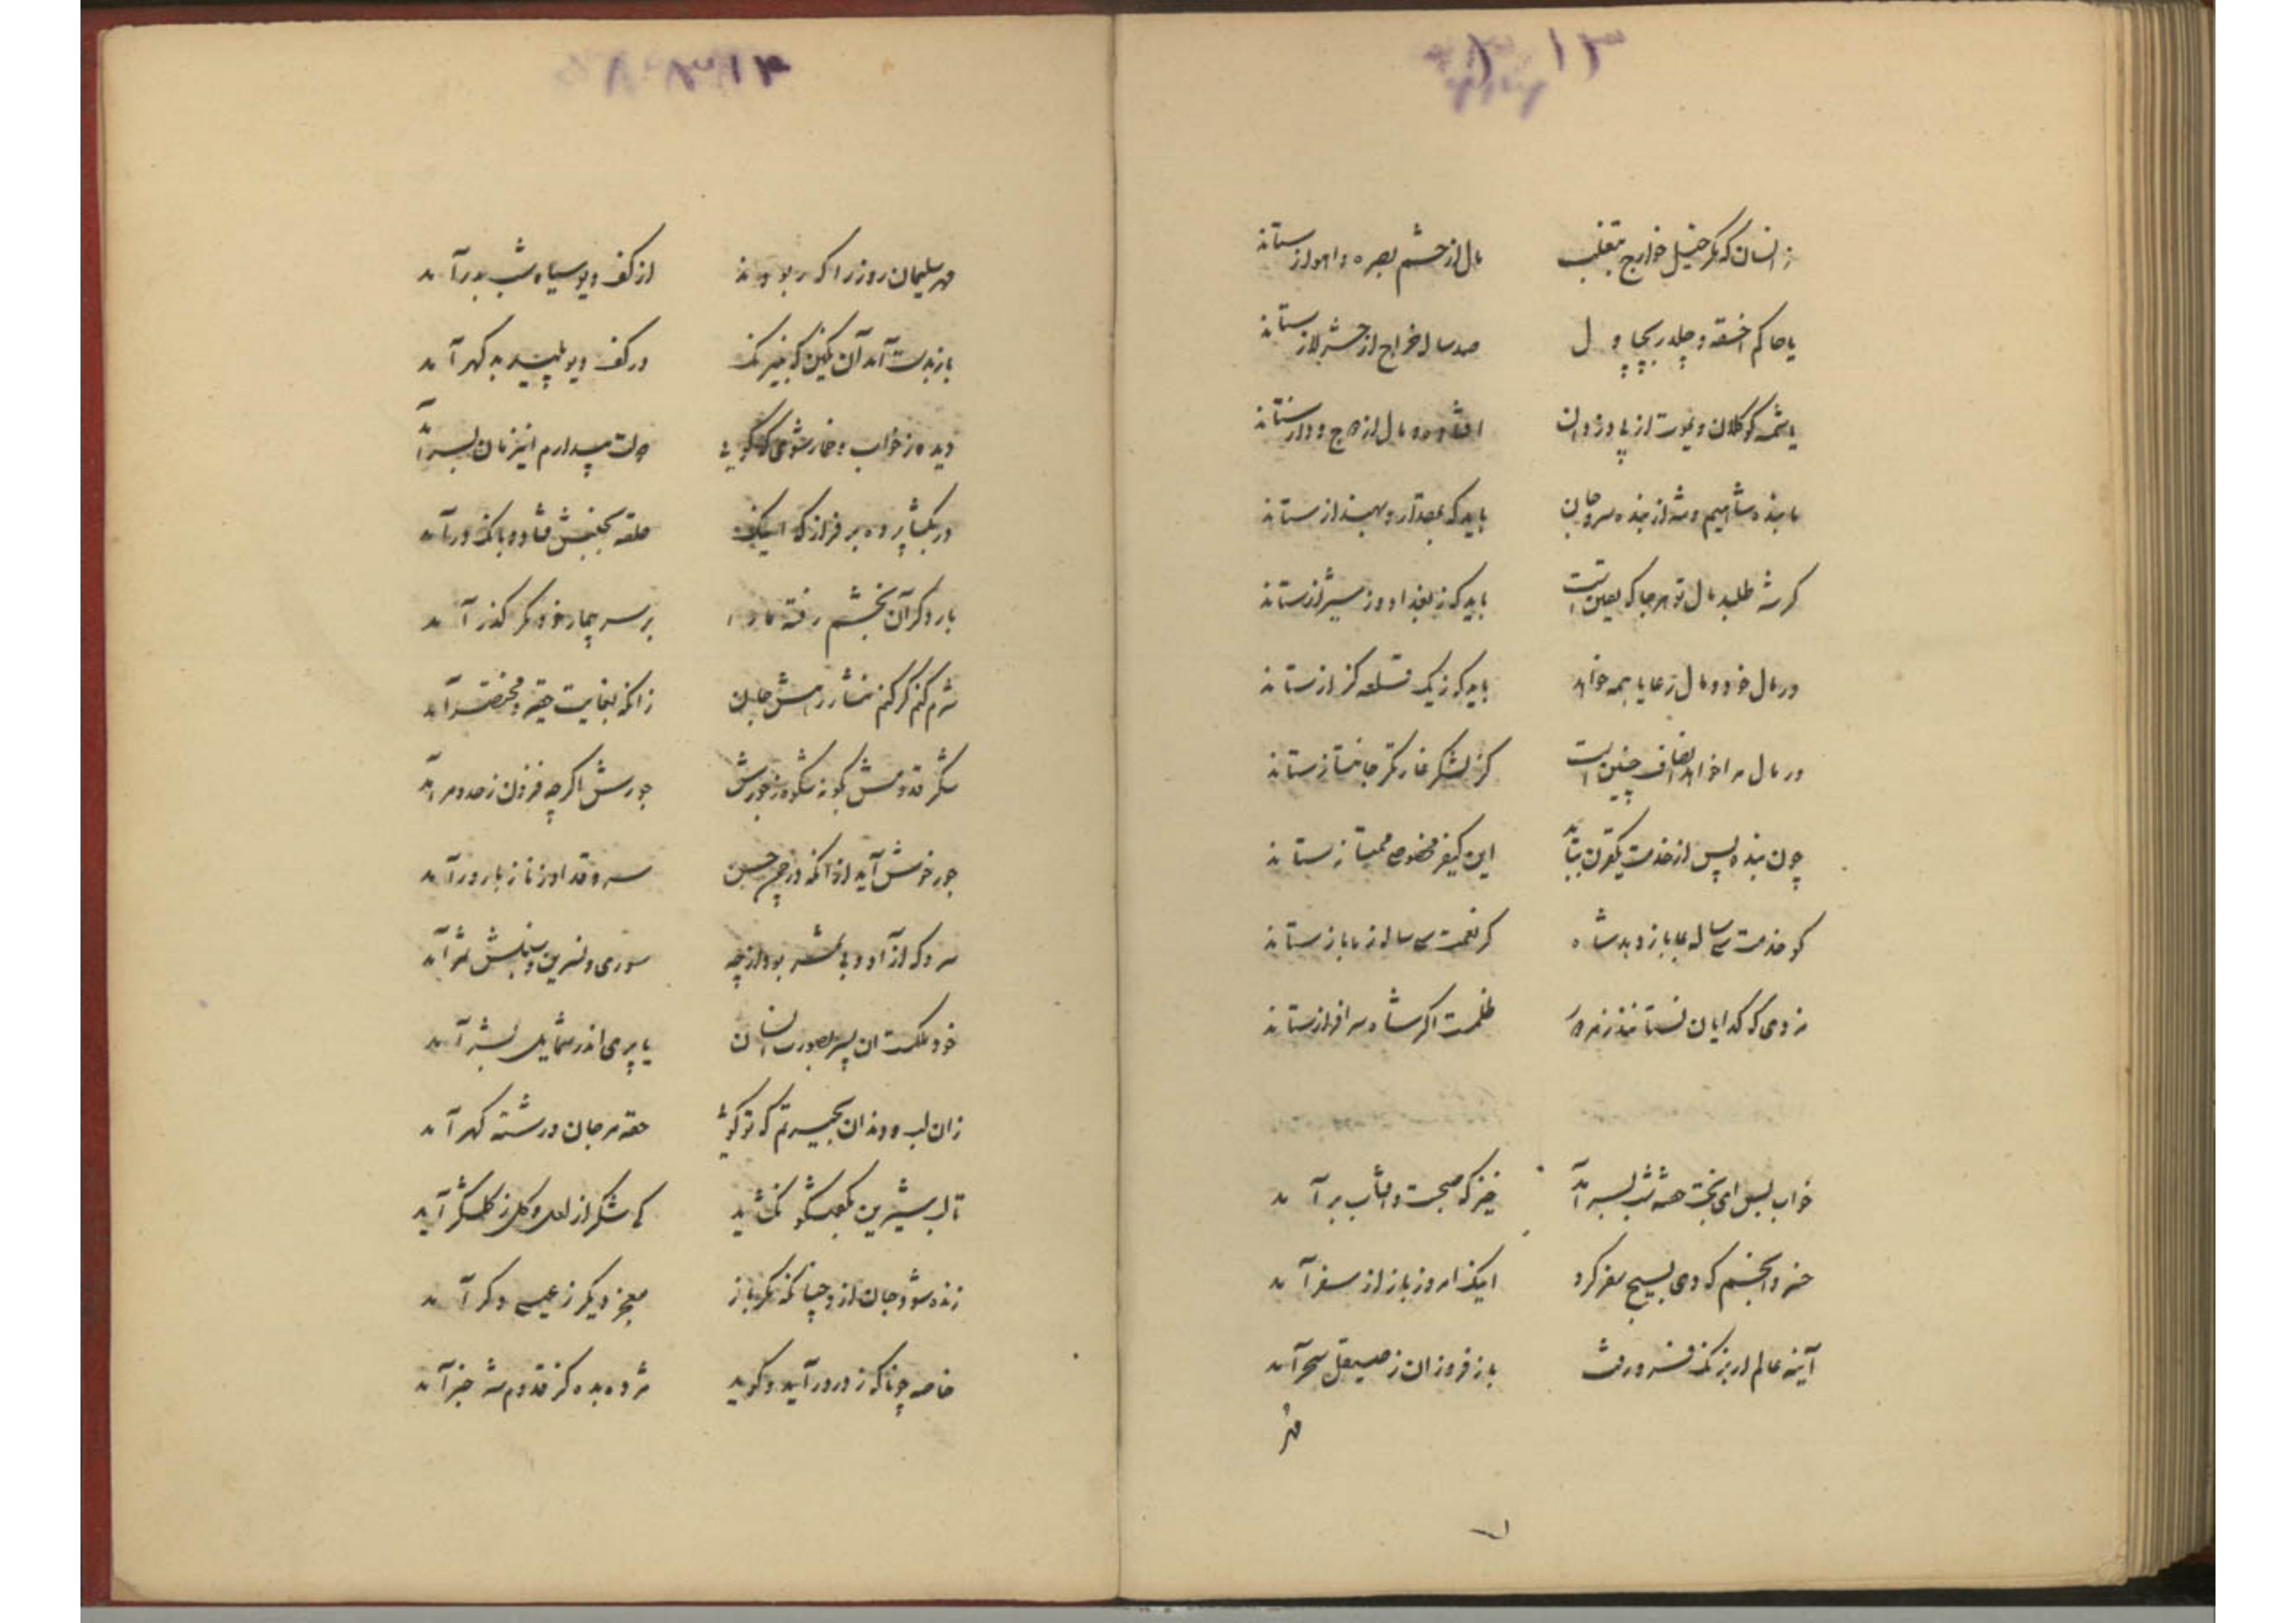 زانسان که مگر خیل خوارج بتغلب    مال از حشم بصره و اهواز ستاند
یا حاکم اخسقه و چلدر بچپاول    صد ساله خراج از
یا شحنه کوکلان و یموت از پی دزدان    افشرده و مال از    ستاند
ما بنده شاهیم و شه از بنده سر و جان    باید که بمقدار و بهنداز ستاند
گر شه طلبد مال تو هر جا که یقین است    باید که ز بغداد و ز شیراز ستاند
در مال خود و مال رعایا همه خواهد    باید که ز یک    ستاند
در مال مرا خواهد انصاف چنین است    کز لشکر غارتگر جانباز ستاند
چون بنده پس از خدمت    این کیفر مخصوص بممتاز ستاند
کو خدمت سی ساله بما باز دهد شاه    گر نعمت سی ساله ز ما باز ستاند
مزدی که گدایان نستانند ز مزدور    ظلمست اگر شاه سرافراز ستاند
خواب بس ای بخت خفته شب بسر آمد    خیز که صبحست و آفتاب برآمد
خسرو انجم که دی بسیج سفر کرد    اینک امروز باز از سفر آمد
آینه عالم ار بزنگ فرو رفت    باز فروزان ز صیقل سحر آمد
مهر
مهر سلیمان روز را که ربودند    از کف دیو سیاه شب بدر آمد
باز بدست آمد آن نگین که بنیرنگ    در کف دیو پلید بد گهر آمد
دیده ز خواب و خمار شوی که گوئی    دولت بیدارم این زمان بسر آمد
در بگشا پرده بر فراز که اینک    حلقه بجنبش فتاد و بانگ در آمد
بار دگر آن بخشم رفته ما را    بر سر بیمار خود مگر گذر آمد
شرم کنم گر کنم نثار رهش جان    زانکه بغایت حقیر و مختصر آمد
شکر قدومش بگو نه شکوه ز جورش    جورش اگر چه فزون ز حد و مر آمد
جور خوش آید از آنکه در چمن حسن    سرو قد او ز ناز بارور آمد
سرو که آزاد و بی ثمر بود از چه    سوری و نسرین و سنبلش ثمر آمد
خود ملکست آن پسر بصورت انسان    یا پری اندر شمایل بشر آمد
زان لب و دندان بحیرتم که تو گوئی    حقه مرجان و رشته گهر آمد
تا لب شیرین بگفتگو نگشاید    کی شکر از لعل و گل ز گلشکر آید
زنده شود جان از او چنانکه مگر باز    معجز دیگر ز عیسی دگر آمد
خاصه چو ناگه ز در درآید و گوید    مژده بده کز قدوم شه خبر آمد